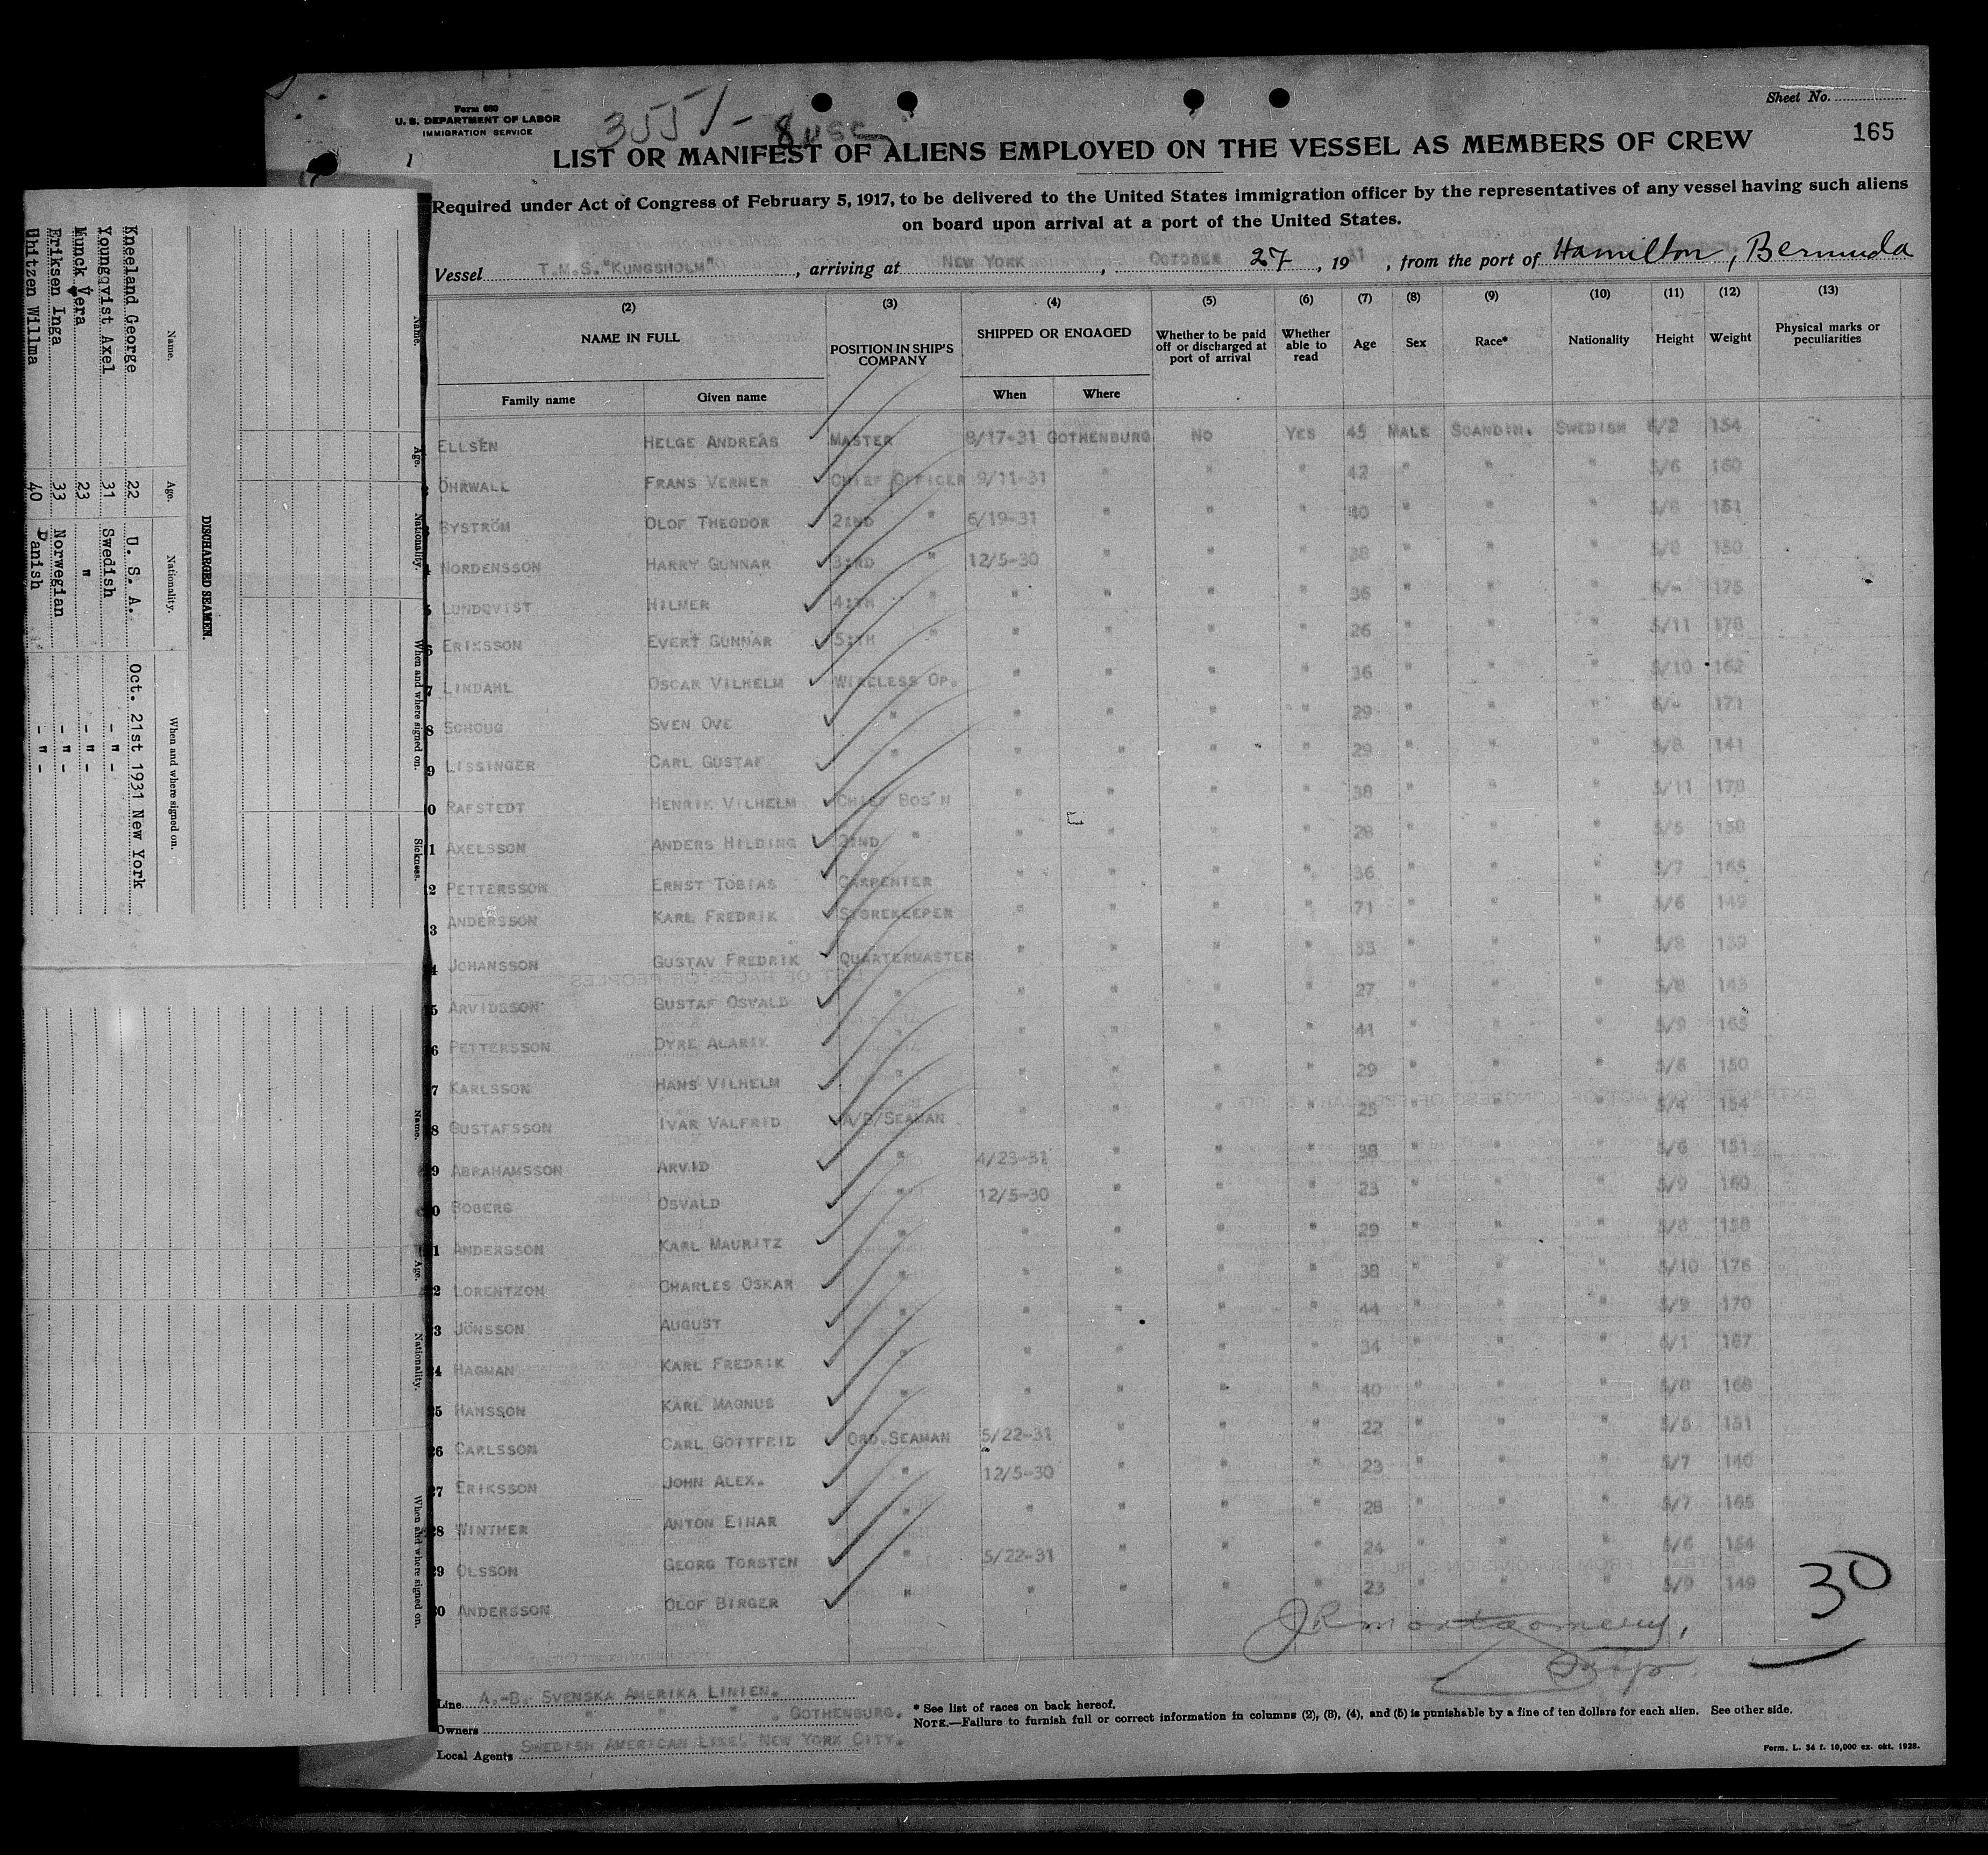 Form 680
U. S. DEPARTMENT OF LABOR
IMMIGRATION SERVICE
3551 -
Sheet No.
165
LIST OR MANIFEST OF ALIENS EMPLOYED ON THE VESSEL AS MEMBERS OF CREW
Required under Act of Congress of February 5, 1917, to be delivered to the United States immigration officer by the representatives of any vessel having such aliens
on board upon arrival at a port of the United States.
Vessel T.M.S. "KUNGSHOLM", arriving at NEW YORK, OCTOBER 27, 1931, from the port of Hamilton, Bermuda
(2) (3) (4) (5) (6) (7) (8) (9) (10) (11) (12) (13)
NAME IN FULL POSITION IN SHIP'S COMPANY SHIPPED OR ENGAGED Whether to be paid off or discharged at port of arrival Whether able to read Age Sex Race* Nationality Height Weight Physical marks or peculiarities
Family name Given name When Where
ELLSÉN HELGE ANDREAS MASTER 8/17-31 GOTHENBURG NO YES 45 MALE SCANDIN. SWEDISH 6/2 154
ÖHRWALL FRANS VERNER CHIEF OFFICER 9/11-31 " " " 42 " " " 5/6 160
BYSTRÖM OLOF THEODOR 2:ND " 6/19-31 " " " 40 " " " 5/8 151
4 NORDENSSON HARRY GUNNAR 3:RD " 12/5-30 " " " 38 " " " 5/8 150
5 LUNDQVIST HILMER 4:TH " " " " " 36 " " " 6/- 175
6 ERIKSSON EVERT GUNNAR 5:TH " " " " " 26 " " " 5/11 178
7 LINDAHL OSCAR VILHELM WIRELESS OP. " " " " 36 " " " 5/10 162
8 SCHOUG SVEN OVE " " " " " 29 " " " 6/- 171
9 LISSINGER CARL GUSTAF " " " " " 29 " " " 5/8 141
0 RAFSTEDT HENRIK VILHELM CHIEF BOS'N " " " " 38 " " " 5/11 178
1 AXELSSON ANDERS HILDING 2:ND " " " " " 28 " " " 5/5 158
2 PETTERSSON ERNST TOBIAS CARPENTER " " " " 36 " " " 5/7 165
3 ANDERSSON KARL FREDRIK STOREKEEPER " " " " 71 " " " 5/6 149
4 JOHANSSON GUSTAV FREDRIK QUARTERMASTER " " " " 33 " " " 5/8 139
15 ARVIDSSON GUSTAF OSVALD " " " " " 27 " " " 5/8 143
6 PETTERSSON DYRE ALARIK " " " " " 41 " " " 5/9 165
7 KARLSSON HANS VILHELM " " " " " 29 " " " 5/6 150
8 GUSTAFSSON IVAR VALFRID A/B/SEAMAN " " " " 25 " " " 5/4 154
9 ABRAHAMSSON ARVID " 4/23-31 " " " 38 " " " 5/6 151
0 BOBERG OSVALD " 12/5-30 " " " 23 " " " 5/9 160
1 ANDERSSON KARL MAURITZ " " " " " 29 " " " 5/8 158
2 LORENTZON CHARLES OSKAR " " " " " 38 " " " 5/10 176
3 JÖNSSON AUGUST " " " " " 44 " " " 5/9 170
24 HAGMAN KARL FREDRIK " " " " " 34 " " " 6/1 187
25 HANSSON KARL MAGNUS " " " " " 40 " " " 5/8 168
26 CARLSSON CARL GOTTFRID ORD.SEAMAN 5/22-31 " " " 22 " " " 5/5 151
27 ERIKSSON JOHN ALEX. " 12/5-30 " " " 23 " " " 5/7 140
28 WINTHER ANTON EINAR " " " " " 28 " " " 5/7 165
29 OLSSON GEORG TORSTEN " 5/22-31 " " " 24 " " " 5/6 154
30 ANDERSSON OLOF BIRGER " " " " " 23 " " " 5/9 149
30
JR Montgomery,
Line A.-B. SVENSKA AMERIKA LINIEN.
Owners " " " . GOTHENBURG.
Local Agents SWEDISH AMERICAN LINE, NEW YORK CITY.
* See list of races on back hereof.
NOTE.—Failure to furnish full or correct information in columns (2), (3), (4), and (5) is punishable by a fine of ten dollars for each alien. See other side.
Form. L. 34 f. 10,000 ex. okt. 1928.
DISCHARGED SEAMEN.
Name. Age. Nationality. When and where signed on.
Kneeland George 22 U. S. A. Oct. 21st 1931 New York
Youngqvist Axel 31 Swedish - " -
Munck Vera 23 " - " -
Eriksen Inga 33 Norwegian - " -
Uhitzen Willma 40 Danish - " -
Name. Age. Nationality. When and where signed on. Sickness.
Name. Age. Nationality. When and where signed on.